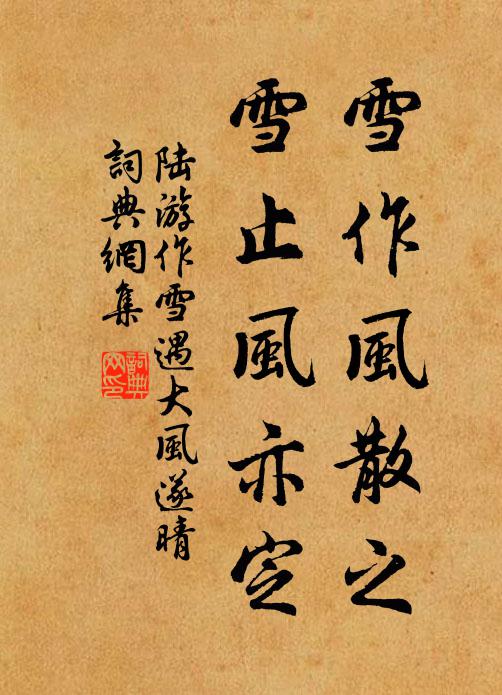 雪作風散之
雪止風亦定
陸游作雪遇大風遂晴
詞典網集
詞典网印